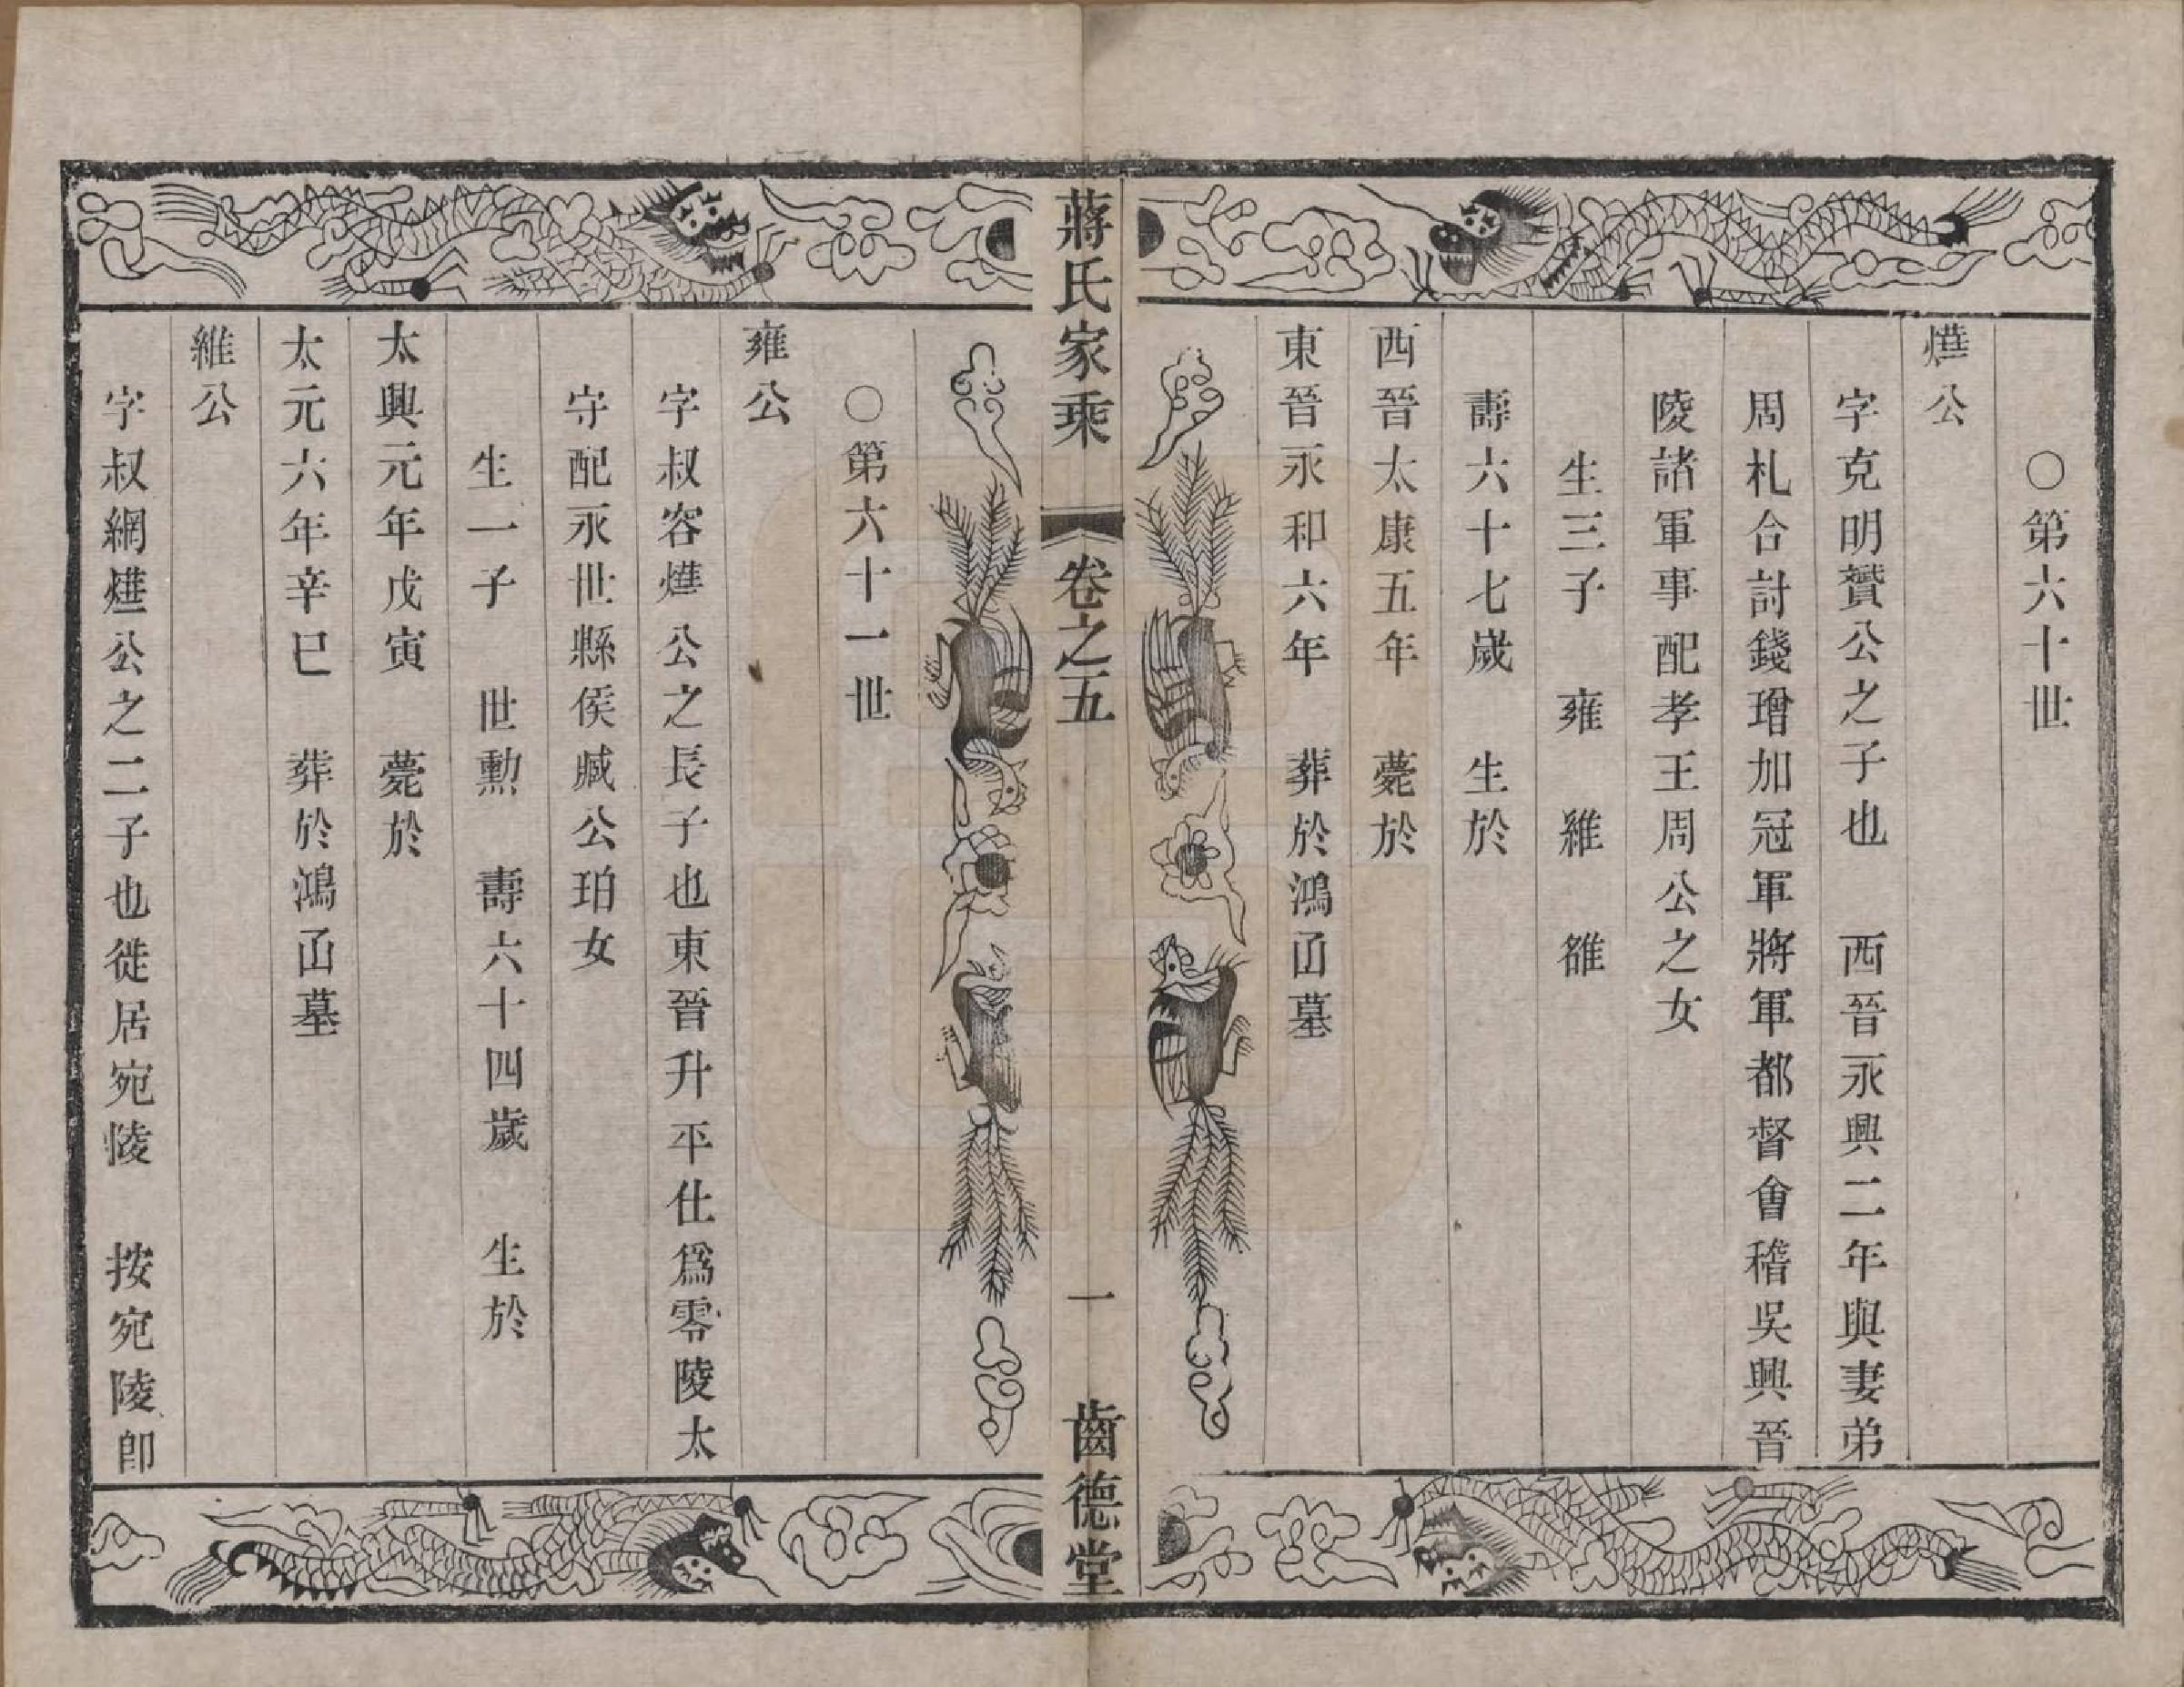 〇第六十世
燁公
字克明贇公之子也　西晉永興二年與妻弟
周札合討錢璯加冠軍將軍都督會稽吳興晉
陵諸軍事配孝王周公之女
生三子　雍　維　雒
壽六十七歲　生於
西晉太康五年　薨於
東晉永和六年　葬於鴻山墓
蔣氏家乘　卷之五　一　齒德堂
〇第六十一世
雍公
字叔容燁公之長子也東晉升平仕爲零陵太
守配永世縣侯臧公珀女
生一子　世勲　壽六十四歲　生於
太興元年戊寅　薨於
太元六年辛巳　葬於鴻山墓
維公
字叔網燁公之二子也徙居宛陵　按宛陵卽